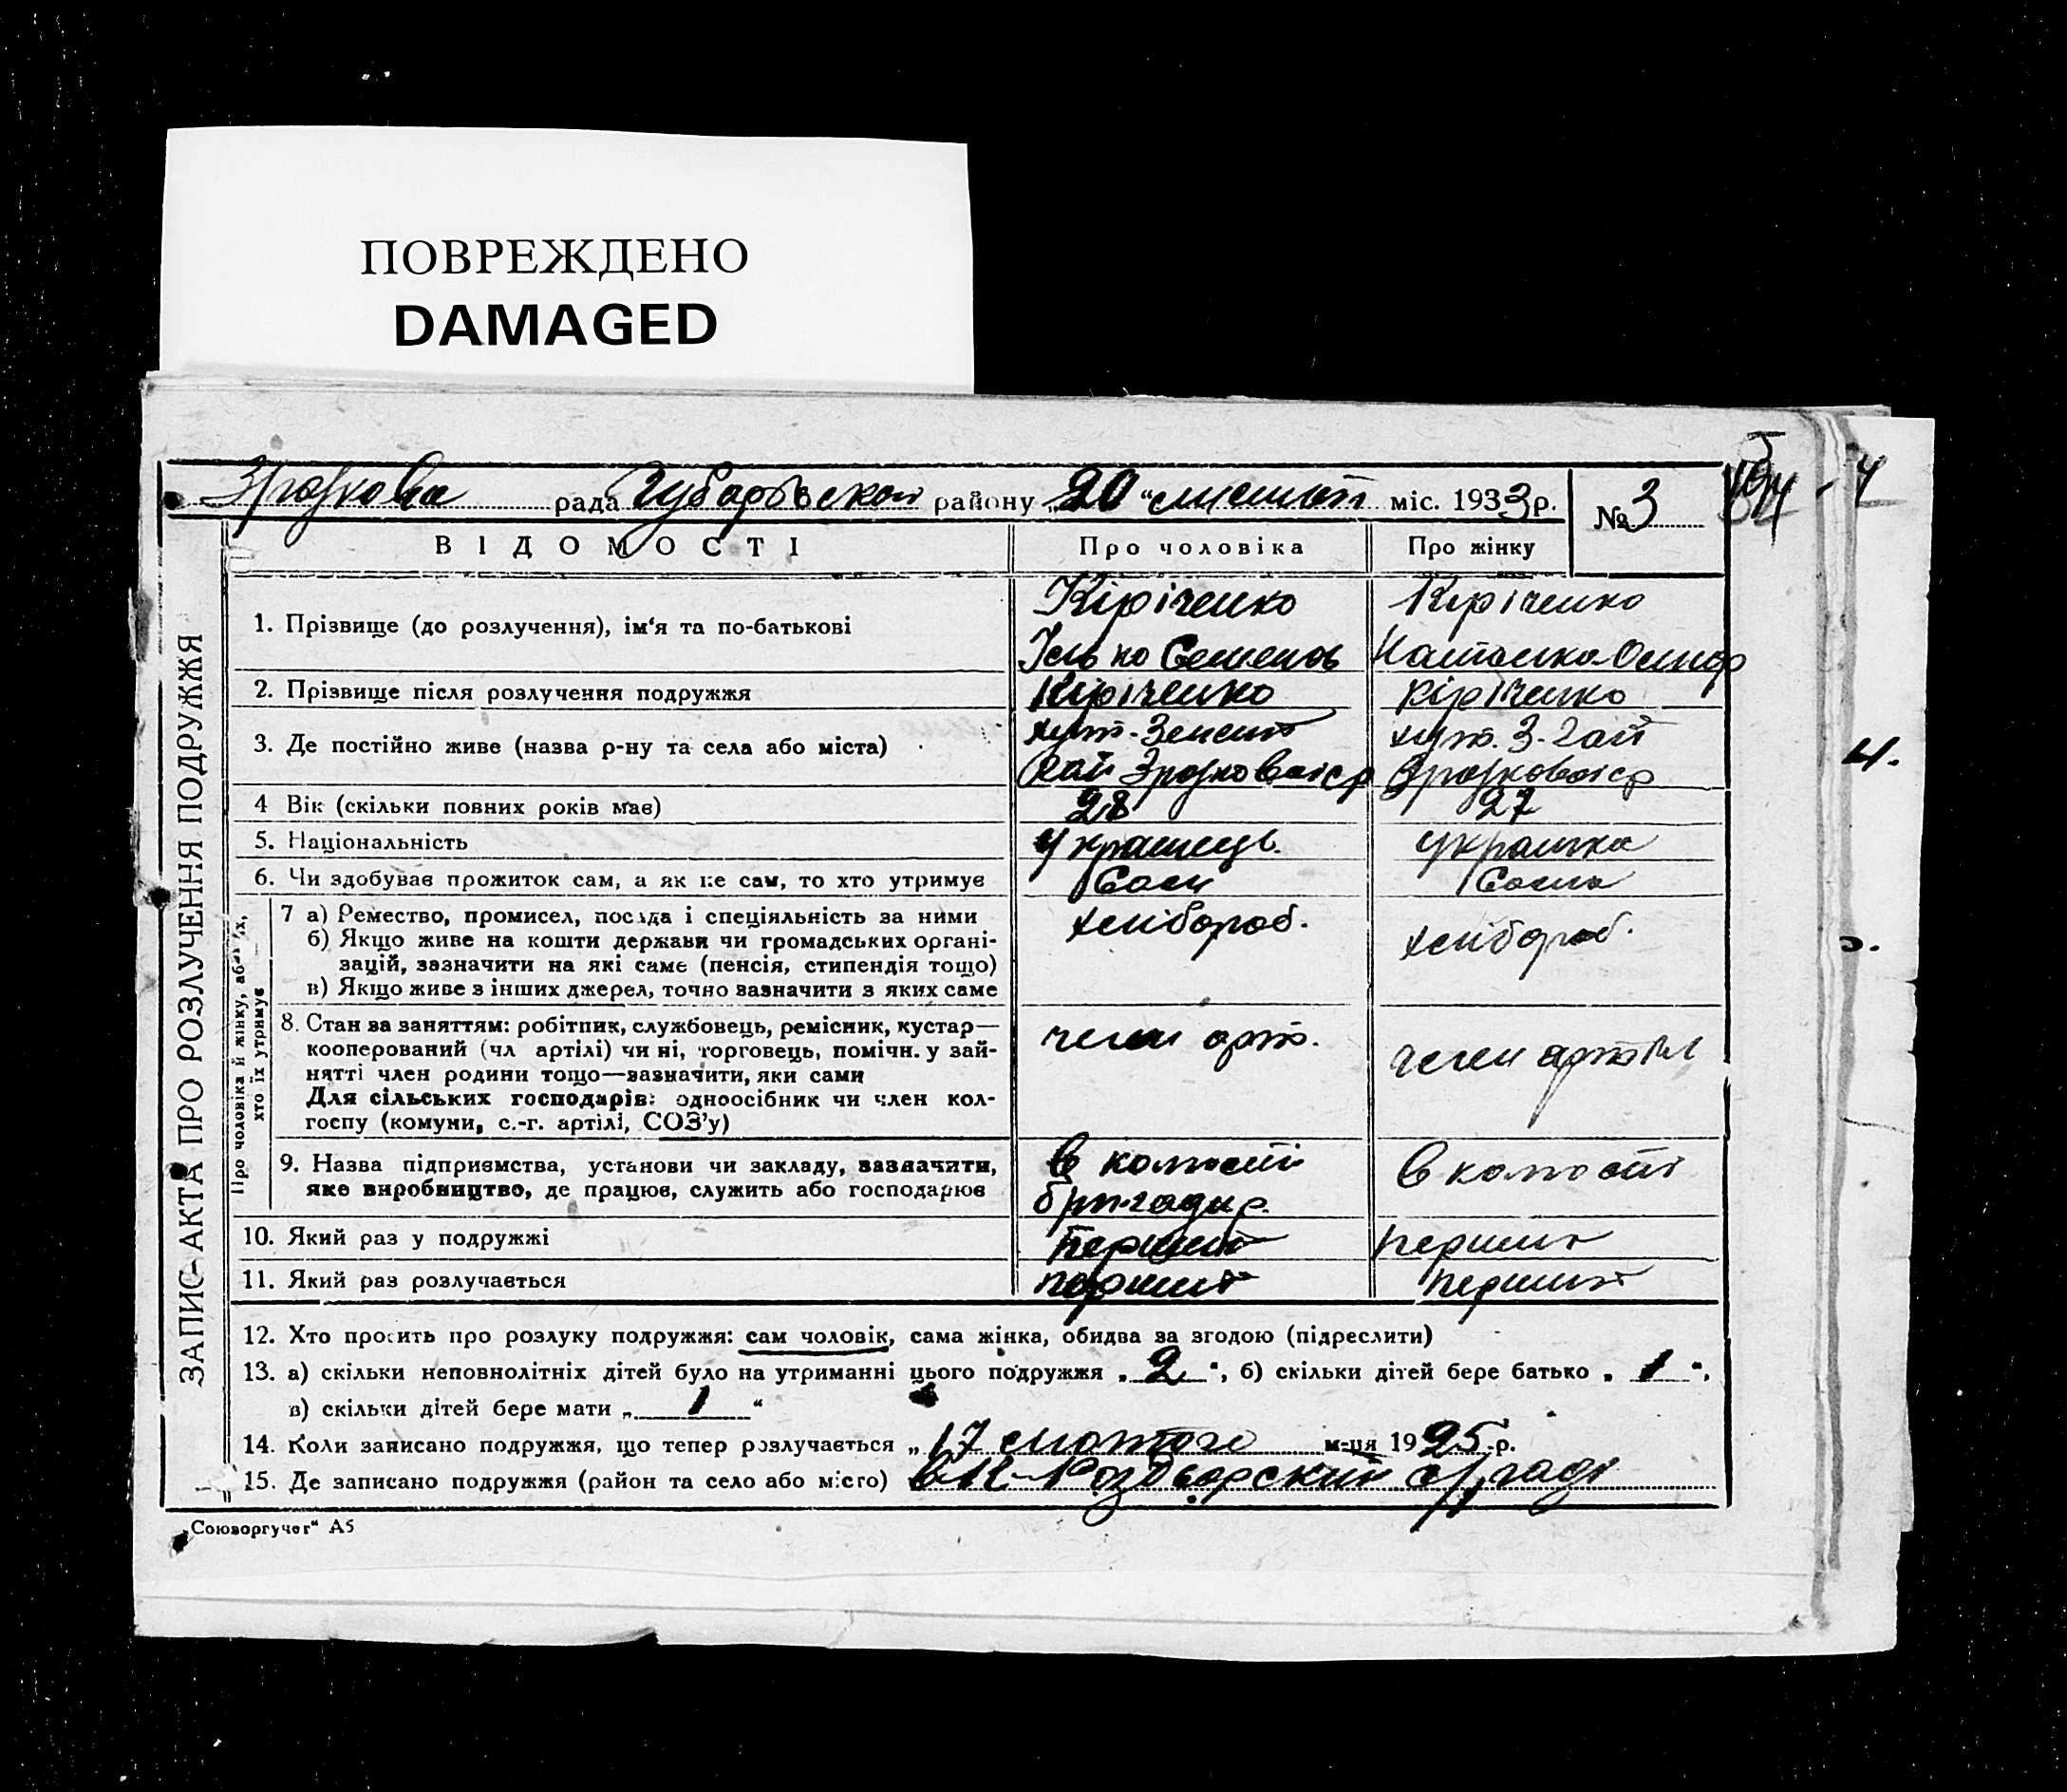 ПОВРЕЖДЕНО
DAMAGED
рада району „20“ міс. 1933 р. № 3
ВІДОМОСТІ Про чоловіка Про жінку
ЗАПИС-АКТА ПРО РОЗЛУЧЕННЯ ПОДРУЖЖЯ
1. Прізвище (до розлучення), ім'я та по-батькові Кіріченко Семенов Кіріченко
2. Прізвище після розлучення подружжя Кіріченко Кіріченко
3. Де постійно живе (назва р-ну та села або міста) хут. хут. З-Гай
Гай
4 Вік (скільки повних років має) 28 27
5. Національність Українець. Українка
6. Чи здобував прожиток сам, а як не сам, то хто утримує Сам Сама
Про чоловіка й жінку, або їх, хто їх утримує
7 а) Ремество, промисел, посада і спеціяльність за ними хлібороб. хлібороб.
б) Якщо живе на кошти держави чи громадських органі-
зацій, зазначити на які саме (пенсія, стипендія тощо)
в) Якщо живе з інших джерел, точно зазначити з яких саме
8. Стан за заняттям: робітник, службовець, ремісник, кустар— член арт. член артілі
кооперований (чл артілі) чи ні, торговець, помічн. у зай-
нятті член родини тощо—зазначити, яки сами
Для сільських господарів: одноосібник чи член кол-
госпу (комуни, с.-г. артілі, СОЗ'у)
9. Назва підприємства, установи чи закладу, зазначити, в колгоспі в колгоспі
яке виробництво, де працює, служить або господарює бригадир.
10. Який раз у подружжі Перший перший
11. Який раз розлучається перший перший
12. Хто просить про розлуку подружжя: сам чоловік, сама жінка, обидва за згодою (підреслити)
13. а) скільки неповнолітніх дітей було на утриманні цього подружжя „2“, б) скільки дітей бере батько „1“,
в) скільки дітей бере мати „1“
14. Коли записано подружжя, що тепер розлучається „17 лютого м-ця 1925 р.
15. Де записано подружжя (район та село або місто) с/раді
„Союзоргучет“ А5